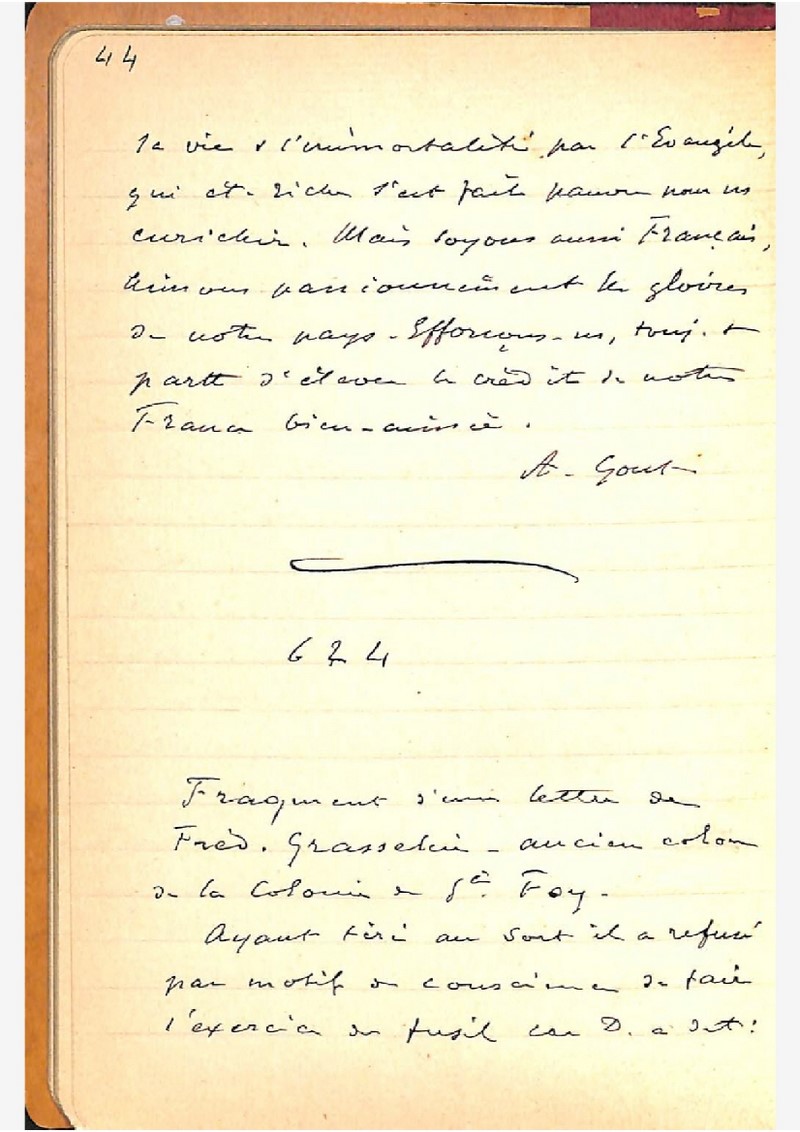 44
la vie & l'immortalité par l'Evangile,
qui ét. riche s'est faite pauvre pour ns
enrichir. Mais soyons aussi Français,
aimons passionnément les gloires
de notre pays. Efforçons-ns, touj. &
partt d'élever le crédit de notre
France bien-aimée.
A. Gout
624
Fragment d'une lettre de
Fréd. Grasselin - ancien colon
de la Colonie de Ste Foy.
Ayant tiré au sort il a refusé
par motif de conscience de faire
l'exercice du fusil car D. a dit: